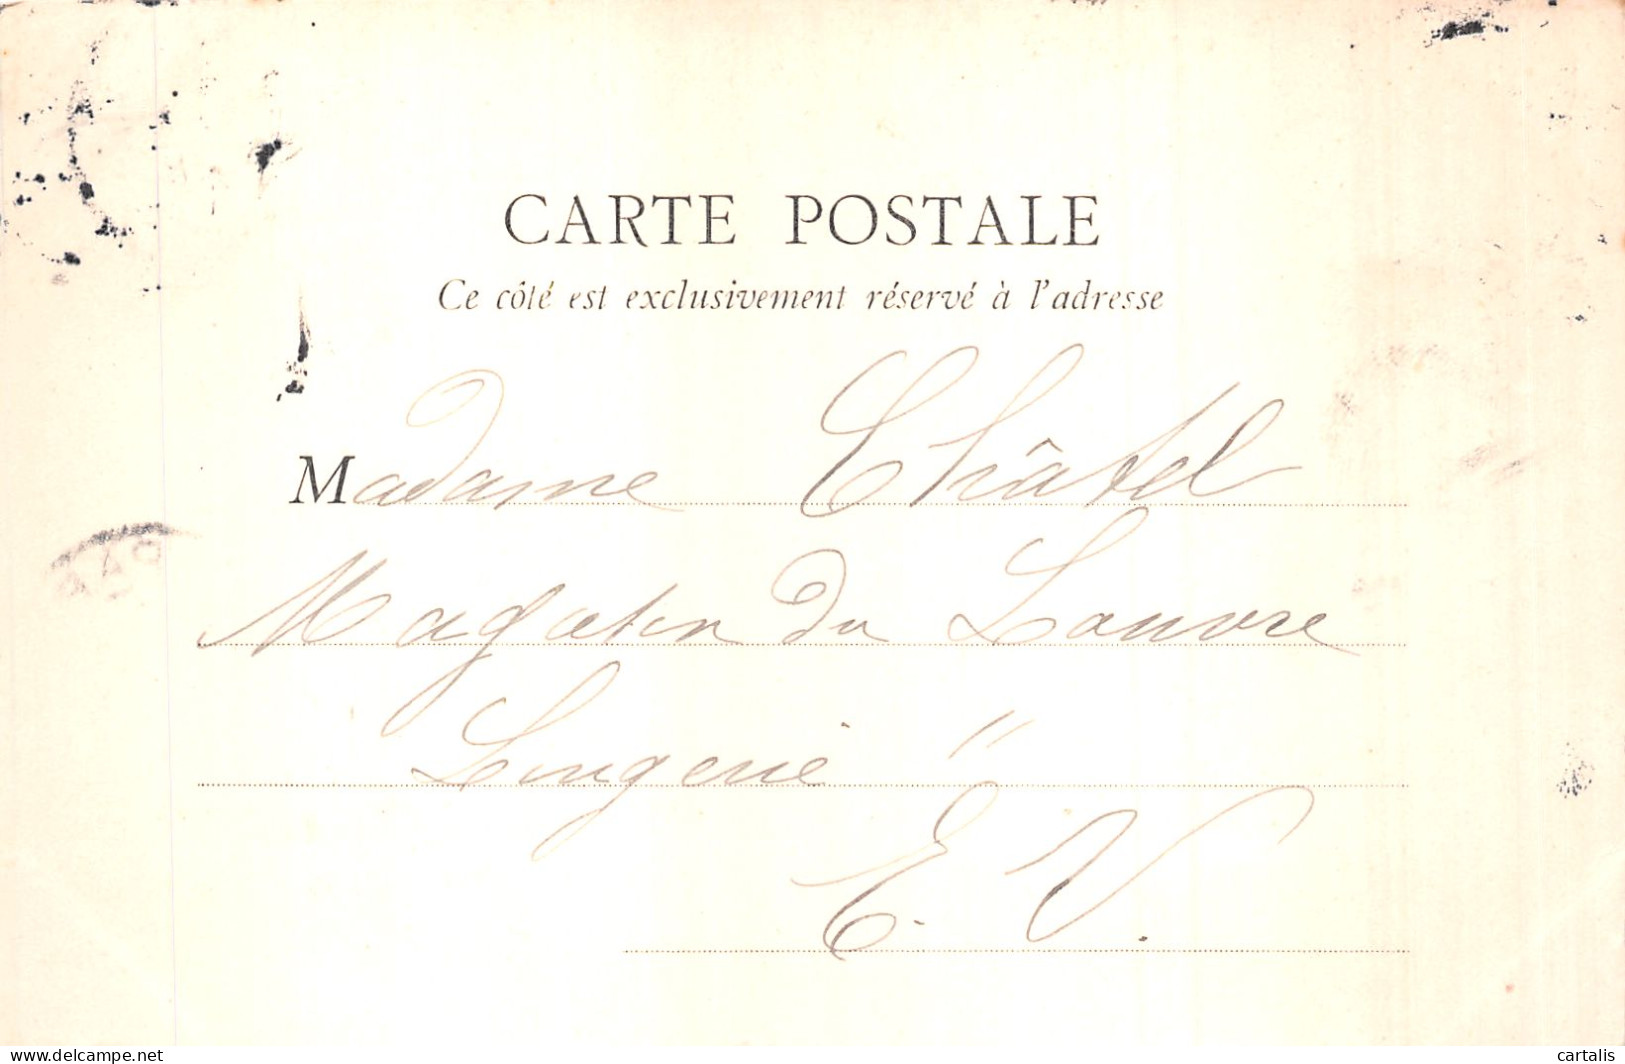 CARTE POSTALE
Ce côté est exclusivement réservé à l'adresse
Madame Châtel
Magasin du Louvre
Lingerie "
E. V.
www.delcampe.net
cartalis